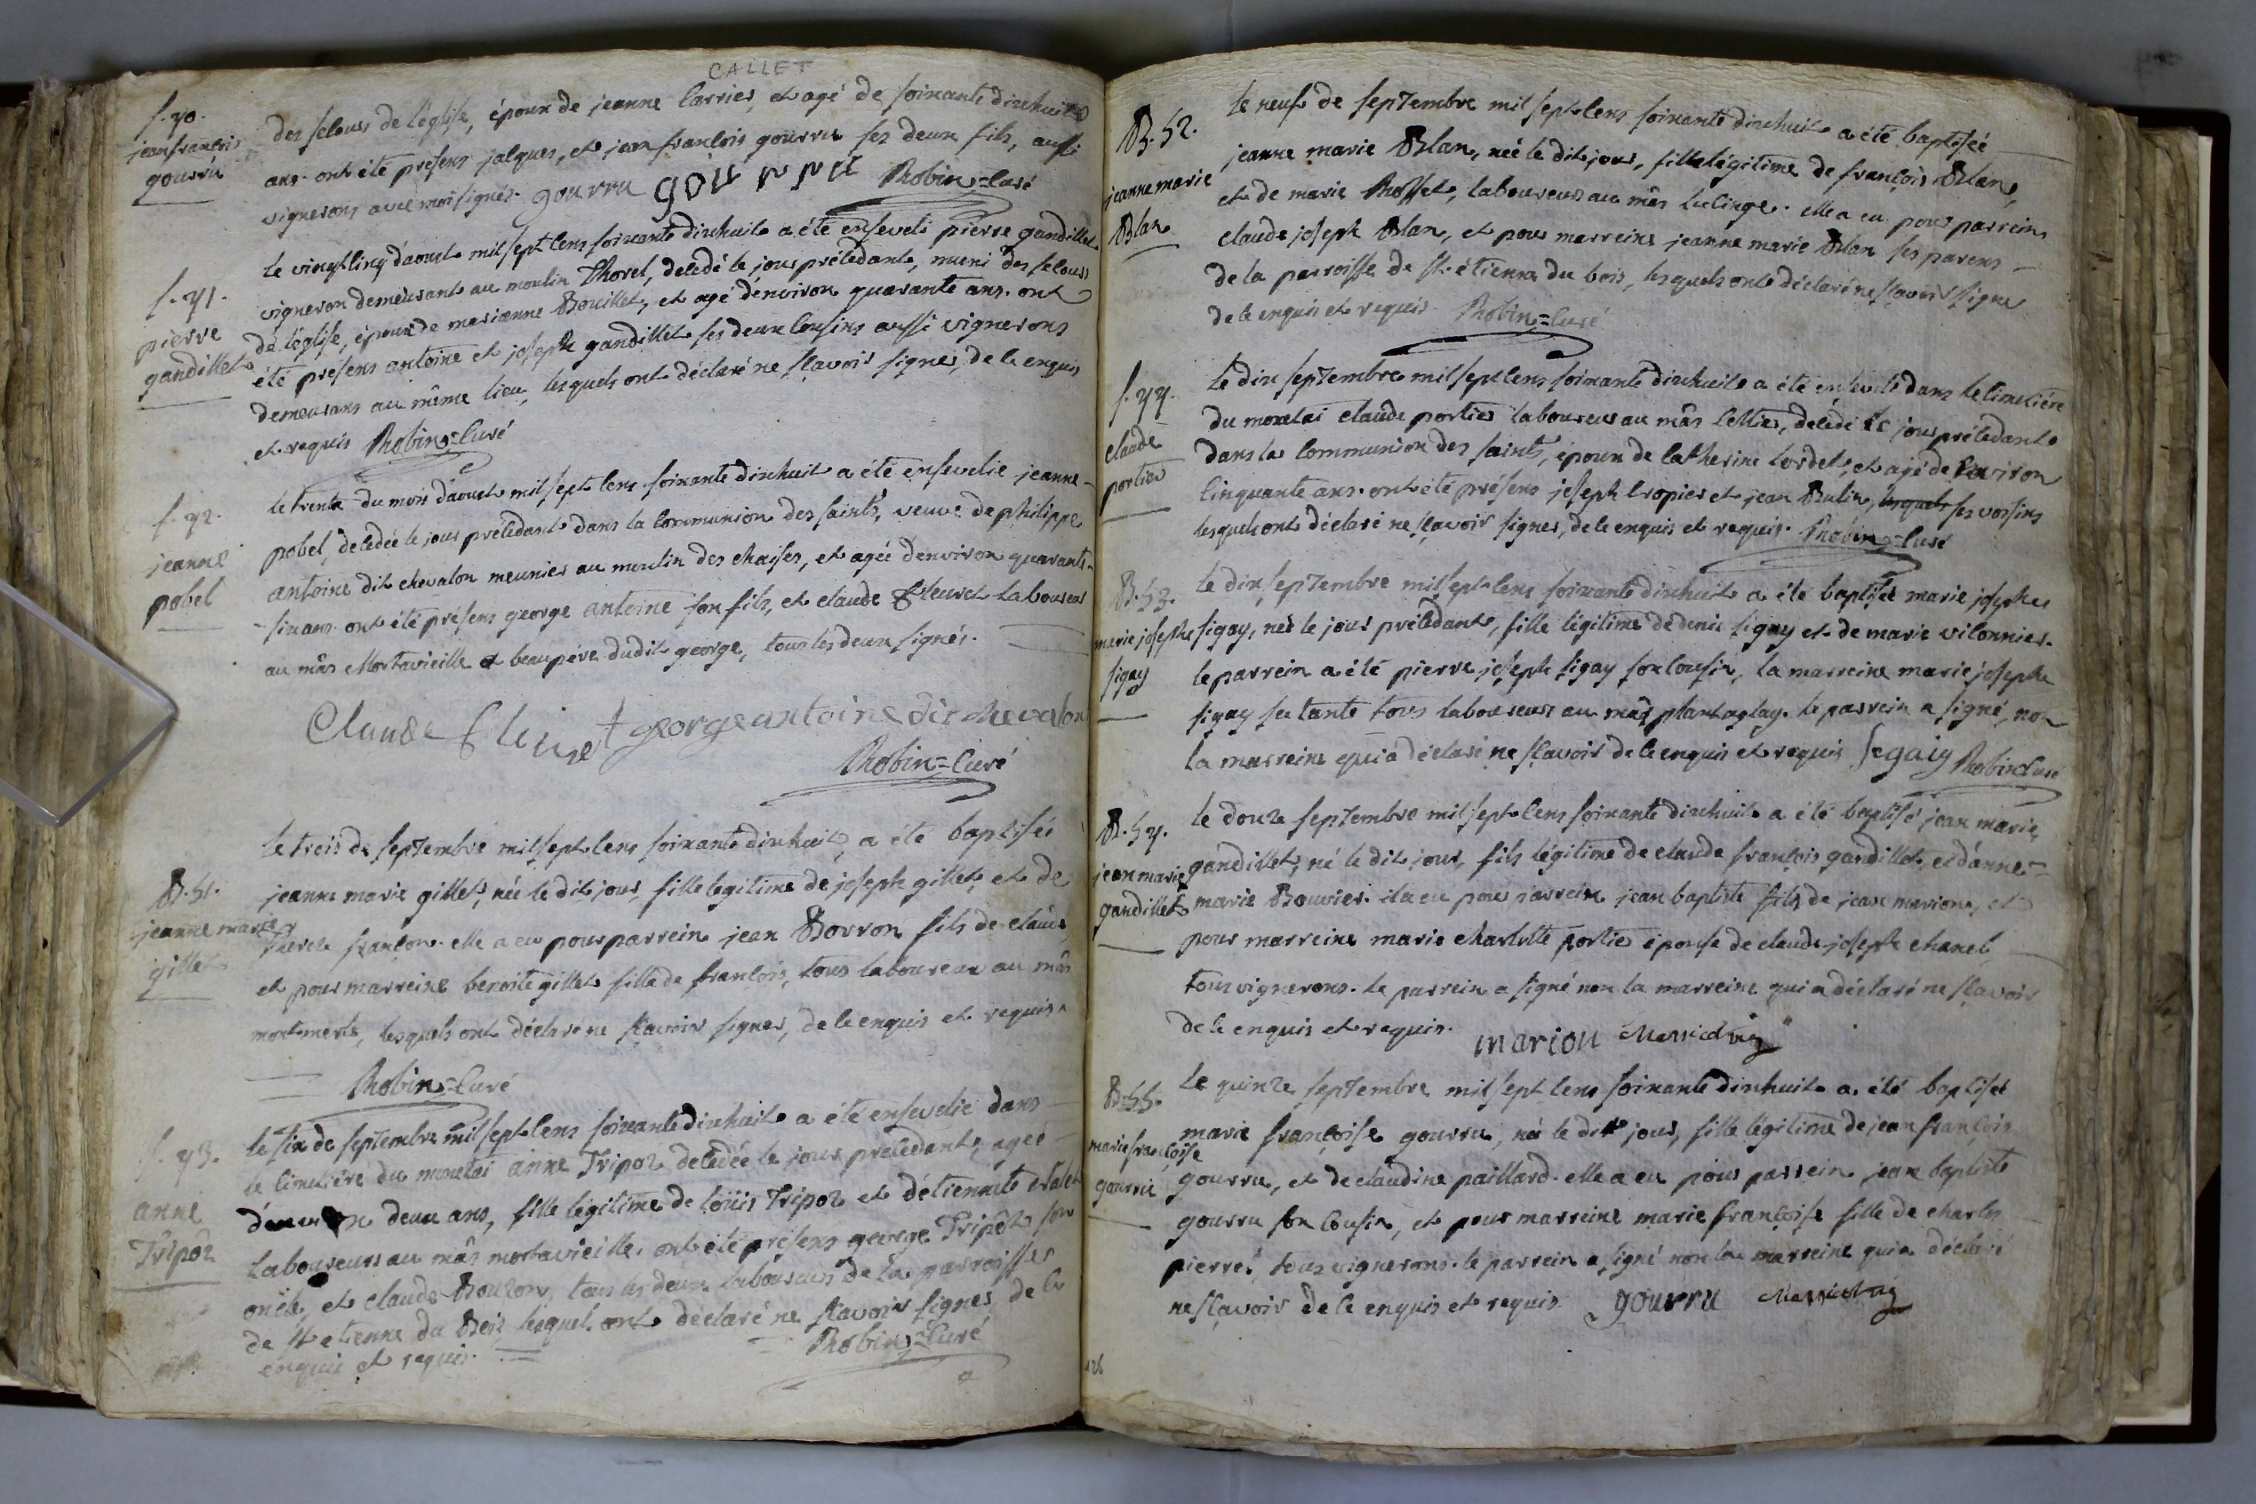 CALLET
s. 70.
jean françois
gourru
des secours de l'église, époux de jeanne carrier, et agé de soixante dixhuit
ans. ont été presens jacques, et jean françois gourru ses deux fils, aussi
vignerons avec moi signés. gourru gourru Robin=curé
s. 71.
pierre
gandillet
le vingt cinq d'aoust mil sept cens soixante dixhuit a été enseveli pierre gandillet
vigneron demeurant au moulin Thorel, decedé le jour précédant, muni des secours
de l'église, époux de marianne Bouillet, et agé d'environ quarante ans. ont
été présens antoine et joseph gandillet ses deux cousins aussi vignerons
demeurans au même lieu, lesquels ont déclaré ne sçavoir signer, de ce enquis
et requis Robin=curé
s. 72.
jeanne
pobel
le trente du mois d'aoust mil sept cens soixante dixhuit a été ensevelie jeanne
pobel, decedée le jour précédant dans la communion des saints, veuve de philippe
antoine dit chevalon meunier au moulin des chaises, et agée d'environ quarante
six ans. ont été présens george antoine son fils, et claude fleuret laboureur
au mâs Mortavieille et beaupére dudit george, tous les deux signés.
Claude fleuret george antoine dit chevalon
Robin=curé
B. 51.
jeanne marie
gillet
le trois de septembre mil sept cens soixante dixhuit, a été baptisée
jeanne marie gillet, née le dit jour, fille legitime de joseph gillet, et de
françon. elle a eu pour parrein jean Borron fils de claude,
et pour marreine benoite gillet fille de françois, tous laboureur au mâs
montmerle, lesquels ont déclaré ne sçavoir signer, de ce enquis et requis.
Robin=curé
s. 73.
anne
Tripoz
le six de septembre mil sept cens soixante dixhuit a été ensevelie dans
le cimetière du monetai anne Tripoz decedée le jour précédant, agée
d'environ deux ans, fille légitime de loüis Tripoz et d'étiennite
laboureurs au mâs mortavieille. ont été présens george Tripoz son
oncle, et claude Bouzon, tous les deux laboureurs de la parroisse
de St etienne du Bois lesquels ont déclaré ne sçavoir signer de ce
enquis et requis. Robin=curé
B. 52.
jeanne marie
Blan
le neuf de septembre mil sept cens soixante dixhuit a été baptisée
jeanne marie Blan, née le dit jour, fille légitime de françois Blan,
et de marie Rosset, laboureurs au mâs lulinge. elle a eu pour parrein
claude joseph Blan, et pour marreine jeanne marie Blan ses parens
de la parroisse de St. étienne du bois, lesquels ont déclaré ne sçavoir signer
de ce enquis et requis. Robin=curé
s. 74.
claude
portier
le dix septembre mil sept cens soixante dixhuit a été enseveli dans le cimetière
du monetai claude portier laboureur au mâs cettier, decedé le jour précédant
dans la communion des saints, époux de catherine cordet, et agé de environ
cinquante ans. ont été présens joseph cropier et jean Bulin, lesquels ses voisins
lesquels ont déclaré ne sçavoir signer, de ce enquis et requis. Robin=curé
B. 53.
marie josephe
sigay
le dix septembre mil sept cens soixante dixhuit a été baptisée marie josephe
sigay, née le jour précédant, fille légitime de denis sigay et de marie vilonnier.
le parrein a été pierre joseph sigay son cousin, la marreine marie josephe
sigay sa tante tous laboureurs au mâs plantaglay. le parrein a signé, non
la marreine qui a déclaré ne sçavoir de ce enquis et requis segaiy Robin curé
B. 54.
jean marie
gandillet
le douze septembre mil sept cens soixante dixhuit a été baptisé jean marie
gandillet, né le dit jour, fils légitime de claude françois gandillet, et d'anne
marie Bouvier. il a eu pour parrein jean baptiste fils de jean marion, et
pour marreine marie charlotte portier épouse de claude joseph chanel
tous vignerons. le parrein a signé non la marreine qui a déclaré ne sçavoir
de ce enquis et requis. marion
B. 55.
marie françoise
gourru
le quinze septembre mil sept cens soixante dixhuit a été baptisée
marie françoise gourru, née le dit jour, fille légitime de jean françois
gourru, et de claudine paillard. elle a eu pour parrein jean baptiste
gourru son cousin, et pour marreine marie françoise fille de charles
pierre, tous vignerons. le parrein a signé non la marreine qui a déclaré
ne sçavoir de ce enquis et requis. gourru
126